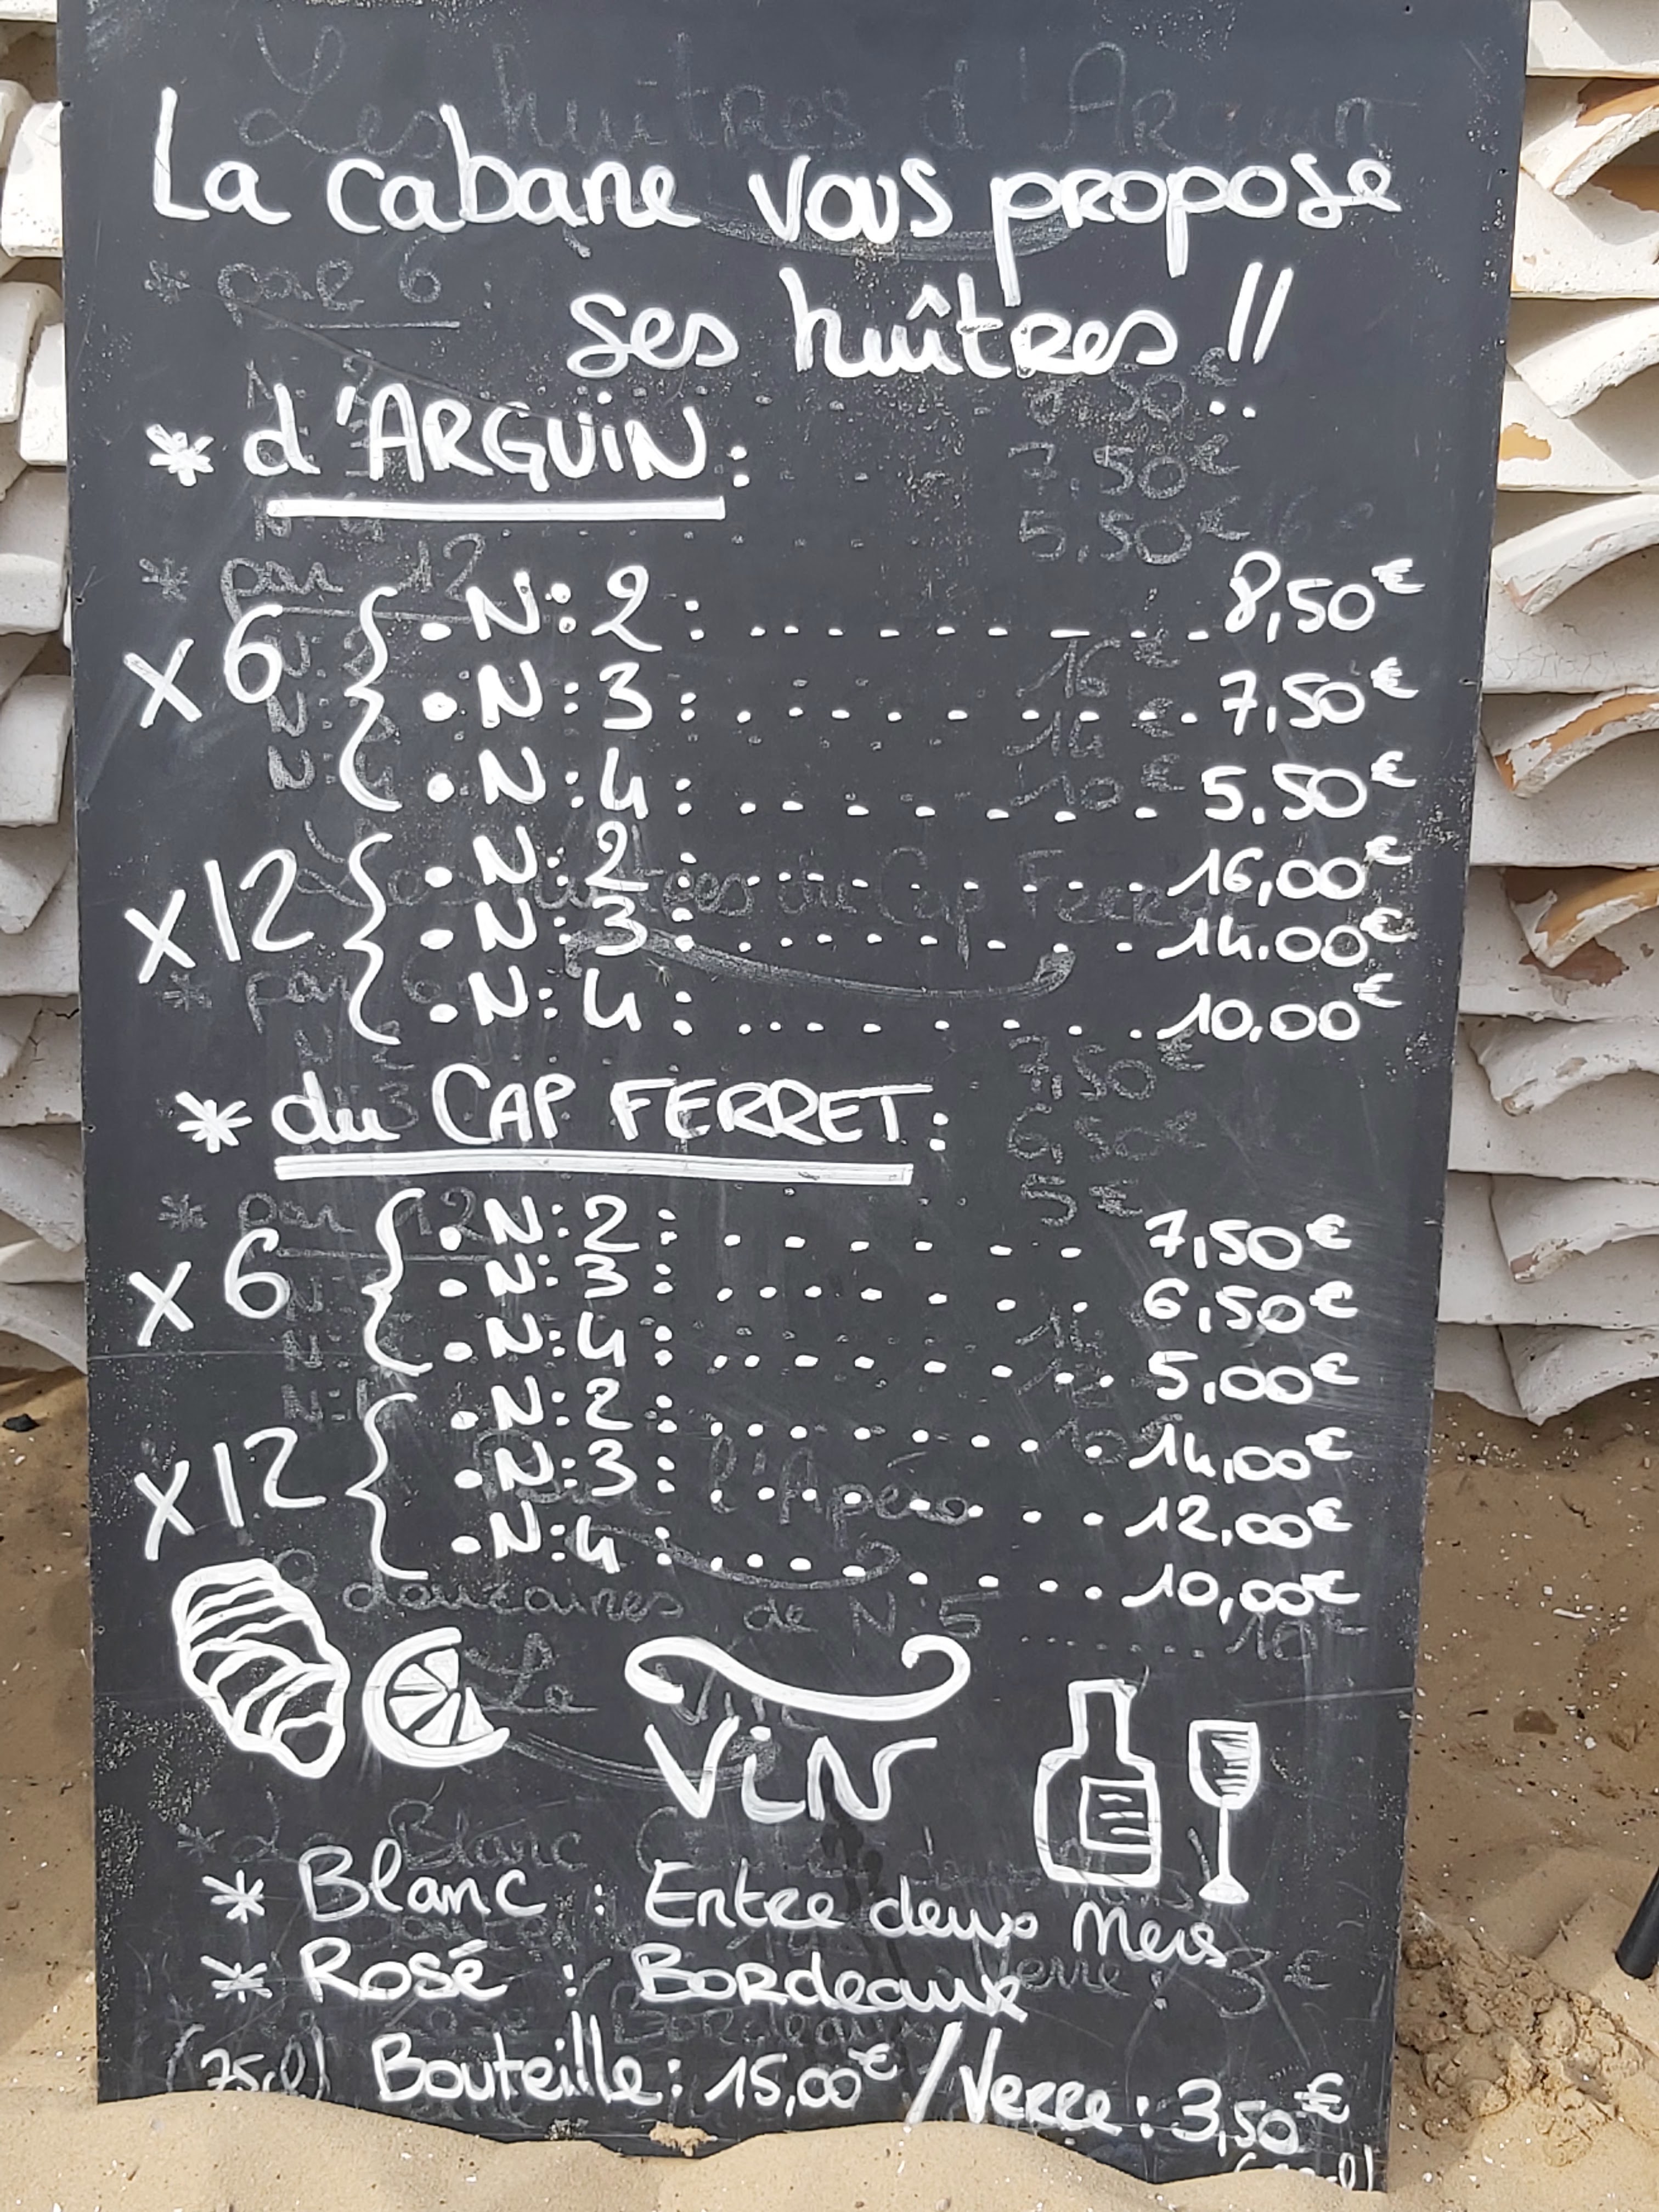 La cabane vous propose
ses huîtres !!
* d'ARGUIN:
x 6 { • N: 2: ............ 8,50€
• N: 3: ............ 7,50€
• N: 4: ............ 5,50€
x 12 { • N: 2: ............ 16,00€
• N: 3: ............ 14.00€
• N: 4: ............ 10,00€
* du CAP FERRET:
x 6 { • N: 2: ............ 7,50€
• N: 3: ............ 6,50€
• N: 4: ............ 5,00€
x 12 { • N: 2: ............ 14,00€
• N: 3: ............ 12,00€
• N: 4: ............ 10,00€
ViN
* Blanc : Entre deux Mers
* Rosé : Bordeaux
(75cl) Bouteille: 15,00€ / Verre: 3,50€